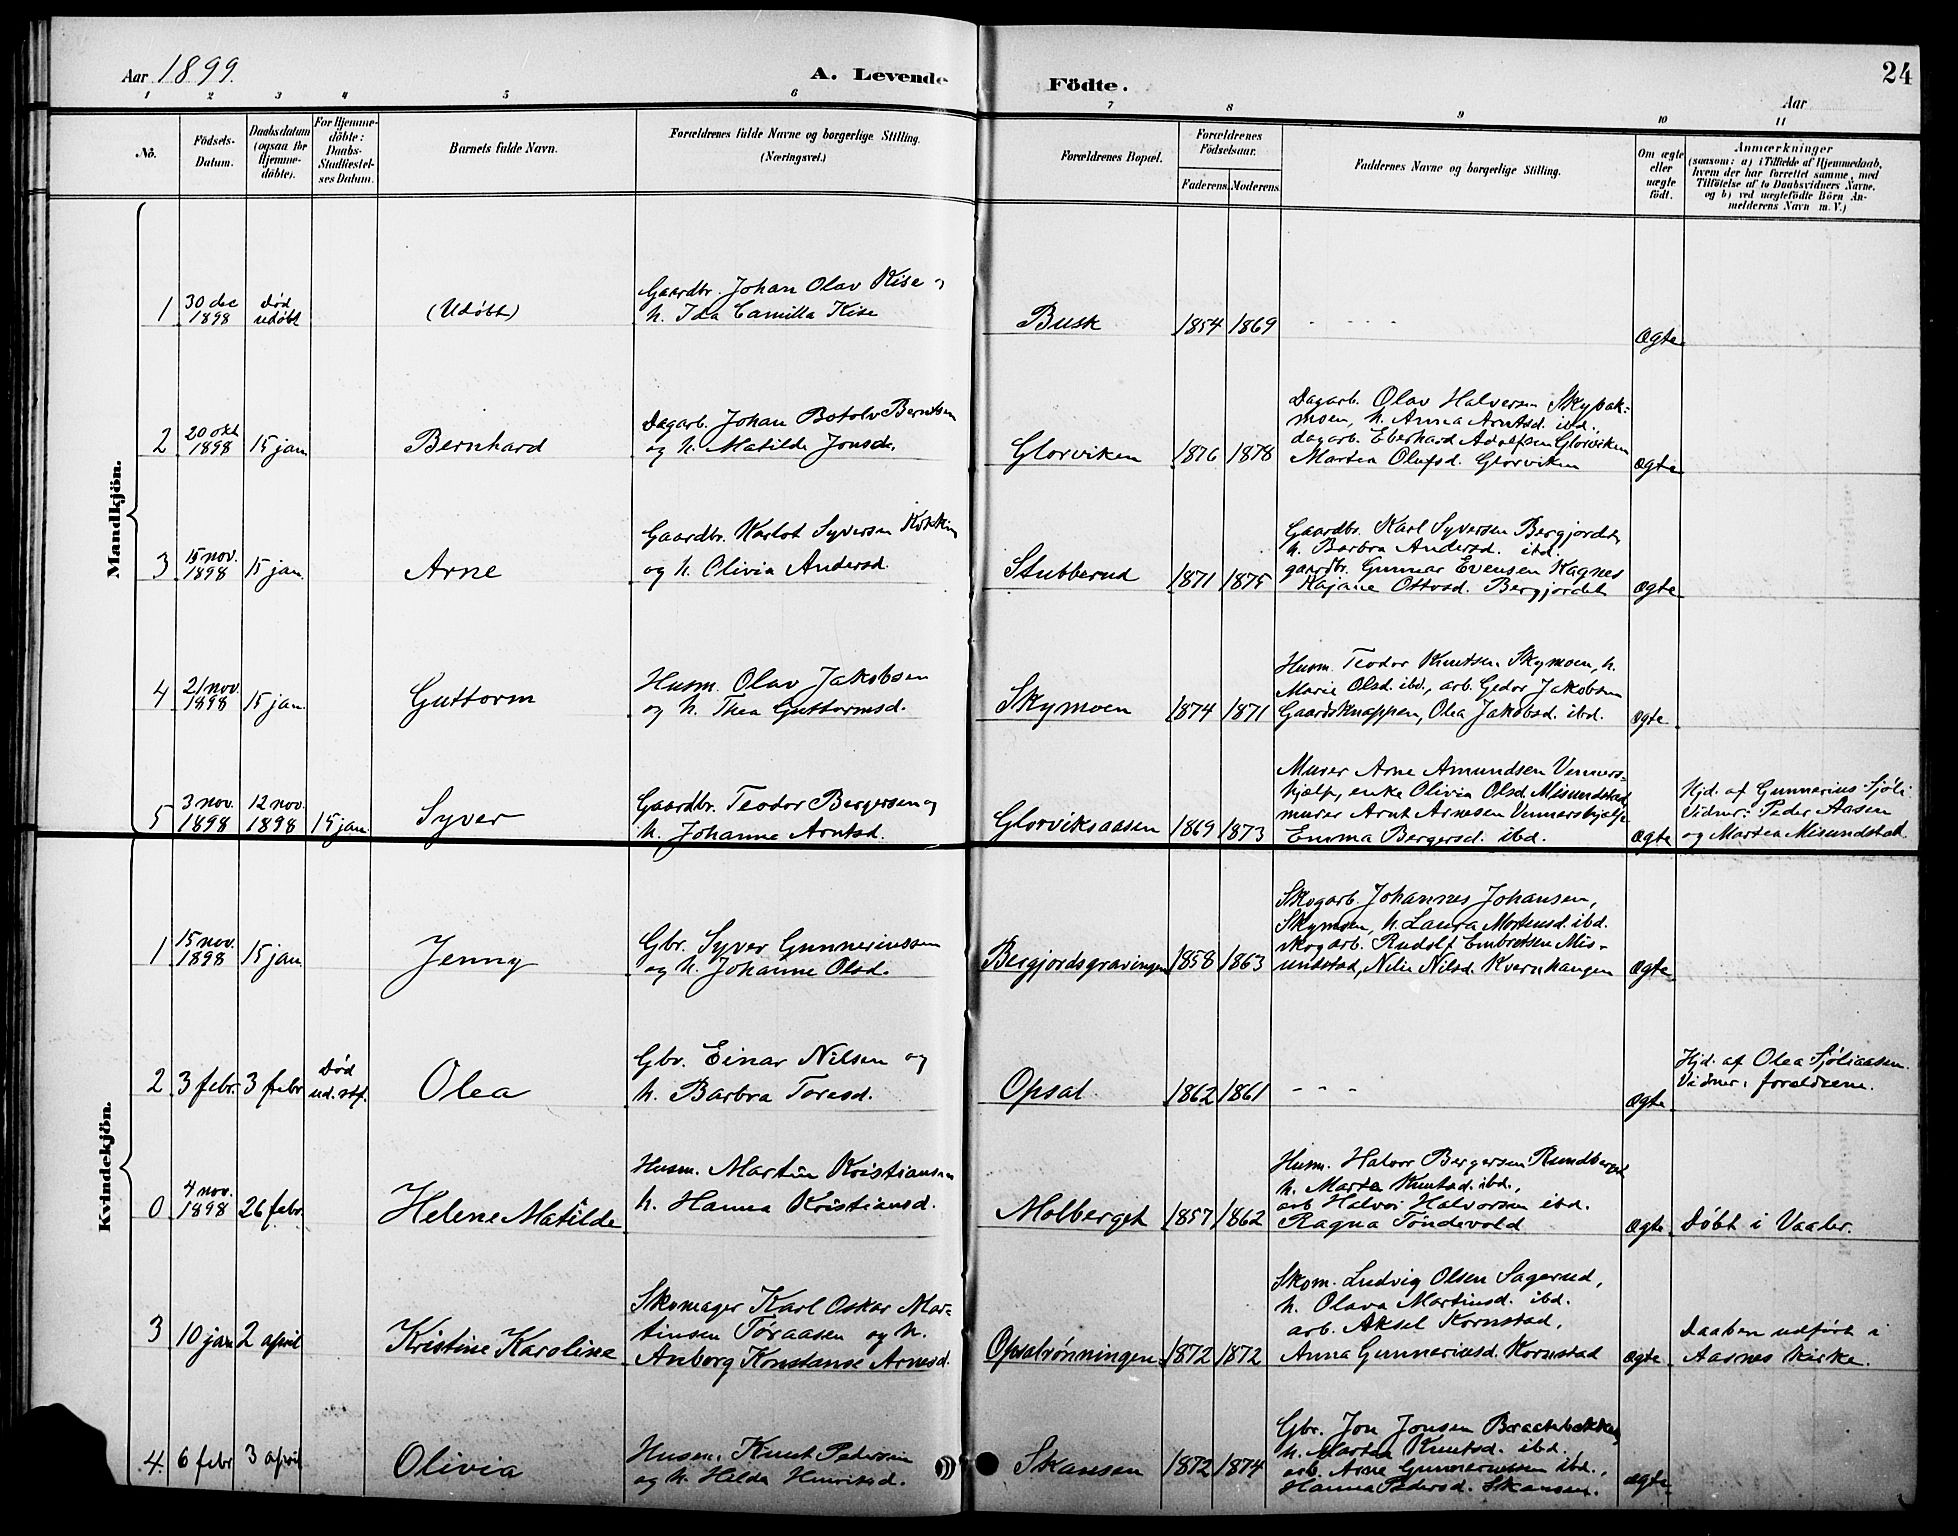 Aar 1899.
A. Levende Födte.
24
Aar
1 2 3 4 5 6 7 8 9 10 11
No.
Födsels-
Datum.
Daabsdatum
(ogsaa for
Hjemme-
döbte).
For Hjemme-
döbte:
Daabs-
Stadfæstel-
ses Datum.
Barnets fulde Navn.
Forældrenes fulde Navne og borgerlige Stilling.
(Næringsvei.)
Forældrenes Bopæl.
Forældrenes
Födselsaar.
Faderens. Moderens.
Faddernes Navne og borgerlige Stilling.
Om ægte
eller
uægte
födt.
Anmærkninger
(saasom: a) i Tilfælde af Hjemmedaab,
hvem der har forrettet samme, med
Tilföielse af to Daabsvidners Navne,
og b) ved uægtefödte Börn An-
melderens Navn m. V.)
Mandkjön.
1
30 dec
1898
Død
udøbt
(Udøbt)
Gaardbr. Johan Olav Kise og
h. Ida Camilla Kise
Busk
1854 1869
- - - -
Ægte
2
20 okt
1898
15 jan
Bernhard
Dagarb. Johan Botolv Berntsen
og h. Matilde Jonsd.
Glorviken
1876 1878
Dagarb. Olav Halversen Skybak-
moen, h. Anna Arntsd. ibd.,
dagarb. Eberhard Adolfsen Glorviken
Martea Olufsd. Glorviken
Ægte
3
15 nov.
1898
15 jan.
Arne
Gaardbr. Karlot Syversen
og h. Olivia Andersd.
Stubberud
1871 1875
Gaardbr. Karl Syversen Bergjordet
h. Barbra Andersd. ibd.
gaardbr. Gunnar Evensen Kagnes
Kajane Ottosd. Bergjordet
Ægte
4
21 nov.
1898
15 jan.
Guttorm
Husm. Olav Jakobsen
og h. Thea Guttormsd.
Skymoen
1874 1871
Husm. Teodor Knutsen Skymoen, h.
Marie Olsd. ibd., arb. Gedor Jakobsen
Gaardsknappen, Olea Jakobsd. ibd.
Ægte
5
3 nov.
1898
12 nov.
1898
15 jan.
Syver
Gaardbr. Teodor Bergersen og
h. Johanne Arntsd.
Glorviksaasen
1869 1873
Murer Arne Amundsen Venners-
hjælp, enke Olivia Olsd. Misundstad
murer Arnt Arnesen Vennershjælp
Emma Bergersd. ibd.
Ægte
Hjd. af Gunnerius Sjøli
Vidner: Peder Aasen
og Martea Misundstad
Kvindekjön.
1
15 nov.
1898
15 jan.
Jenny
Gbr. Syver Gunneriussen
og h. Johanne Olsd.
Bergjordsgravingen
1858 1863
Skogarb. Johannes Johansen,
Skymoen, h. Laura Mortensd. ibd.
skogarb. Rudolf Embretsen Mis-
undstad, Nilie Nilsd. Kvernhaugen
Ægte
2
3 febr.
3 febr
Død
ud. stf.
Olea
Gbr. Einar Nilsen og
h. Barbra Toresd.
Opsal
1862 1861
- - -
Ægte
Hjd. af Olea Sjøliaasen.
Vidner: forældrene.
0
4 nov.
1898
26 febr.
Helene Matilde
Husm. Martin Kristiansen
h. Hanna Kristiansd.
Molberget
1857 1862
Husm. Halvor Bergersen Rundberget
h. Marte Knutsd. ibd.,
arb Halvor Halvorsen ibd.
Ragna Tøndevold
Ægte
Døbt i Vaaler.
3
10 jan
2 april
Kristine Karoline
Skomager Karl Oskar Mar-
tinsen Føraasen og h.
Anborg Konstanse Arnesd.
Opsalrønningen
1872 1872
Skom. Ludvig Olsen Sagerud,
h. Olava Martinsd. ibd.
arb. Aksel Kornstad,
Anna Gunneriusd. Kornstad
Ægte
Daaben udført i
Aasnes kirke.
4.
6 febr
3 april
Olivia
Husm. Knut Pedersen
og h. Helda Henriksd.
Skansen
1872 1874
Gbr. Jon Jonsen Braatebakken,
h. Martea Knutsd. ibd.
arb. Arne Gunneriussen ibd.,
Hanna Pedersd. Skansen.
Ægte